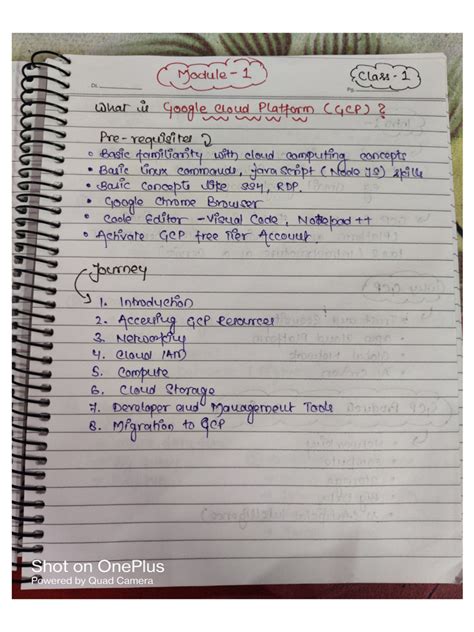 Module - 1
Class - 1
Dt.
Pg.
What is Google Cloud Platform (GCP) ?
Pre-requisites
• Basic familiarity with cloud computing concepts
• Basic Linux commands, javascript (Node JS) skills
• Basic Concepts like SSH, RDP.
• Google Chrome Browser
• Code Editor - Visual Code, Notepad ++
• Activate GCP free Tier Account
Journey
1. Introduction
2. Accessing GCP Resources
3. Networking
4. Cloud IAM
5. Compute
6. Cloud Storage
7. Developer and Management Tools
8. Migration to GCP
Shot on OnePlus
Powered by Quad Camera